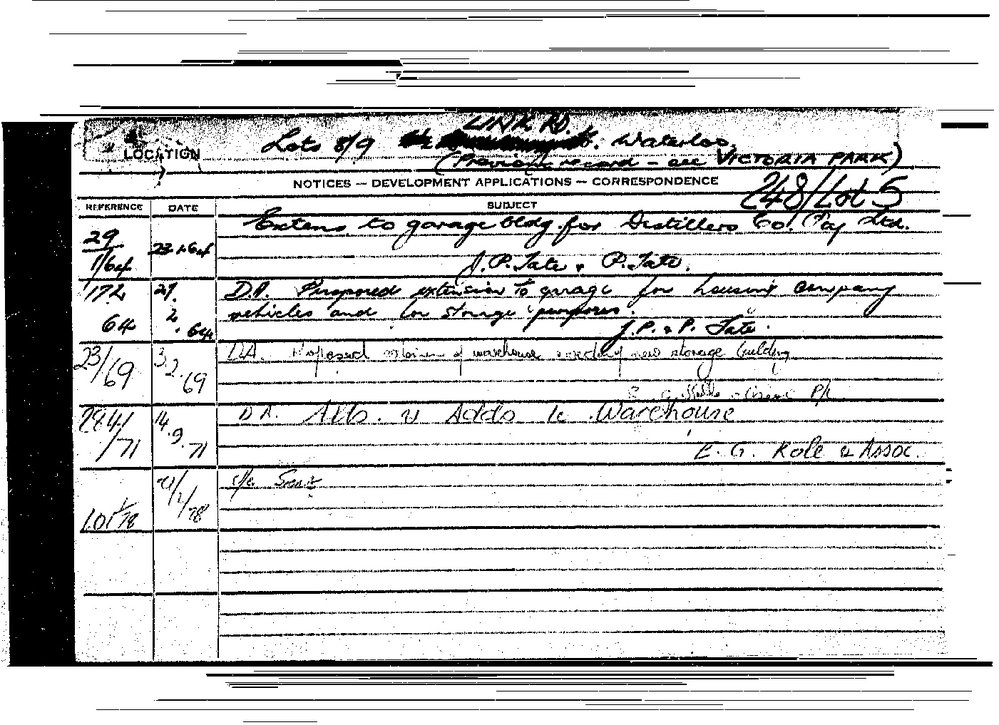 LINK RD.
LOCATION Lots 8/9 St. Waterloo
(Previous record - see VICTORIA PARK)
NOTICES — DEVELOPMENT APPLICATIONS — CORRESPONDENCE 248/Lot 5
REFERENCE DATE SUBJECT
29/1/64 23.1.64 Extens to garage bldg for Distillers Co. Pty Ltd.
J.P. Tate & P. Tate.
172/64 27.2.64 D.A. Proposed extension to garage for housing company
vehicles and for storage purposes.
J.P. & P. Tate.
23/69 3.2.69 D.A. Proposed of warehouse new storage building
P/L
/71 14.9.71 D.A. Alts. & Adds to Warehouse
E. G. Role & Assoc.
101/78